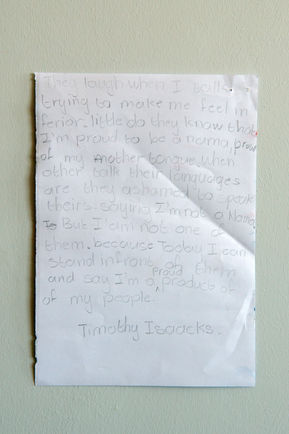 They laugh when I talk
trying to make me feel in
ferior. little do they know that
I'm proud to be a nama, proud
of my mother tongue. when
other talk their languages
are they ashamed to speak
theirs. saying I'm not a Nama
But I'am not one of
them. because Today I can
stand infront of them
and say I'm a proud product of
of my people.
Timothy Isaacks.